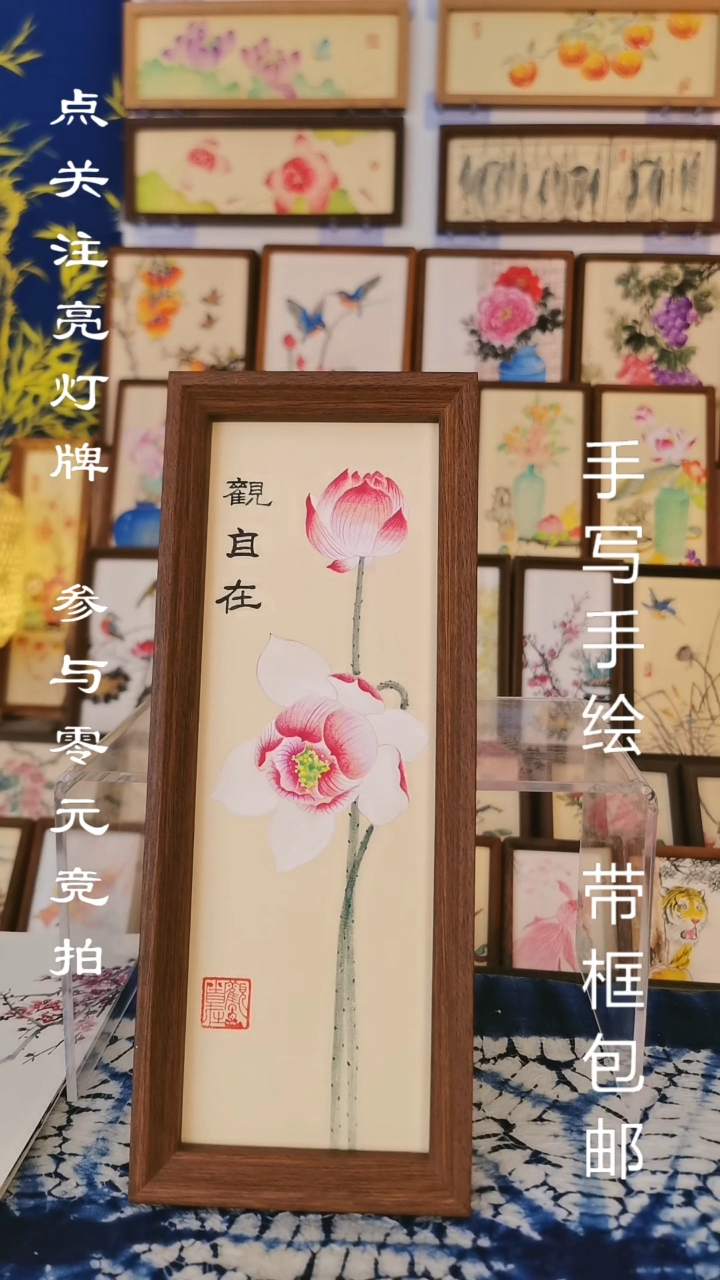 点关注亮灯牌 参与零元竞拍
觀自在
手写手绘 带框包邮